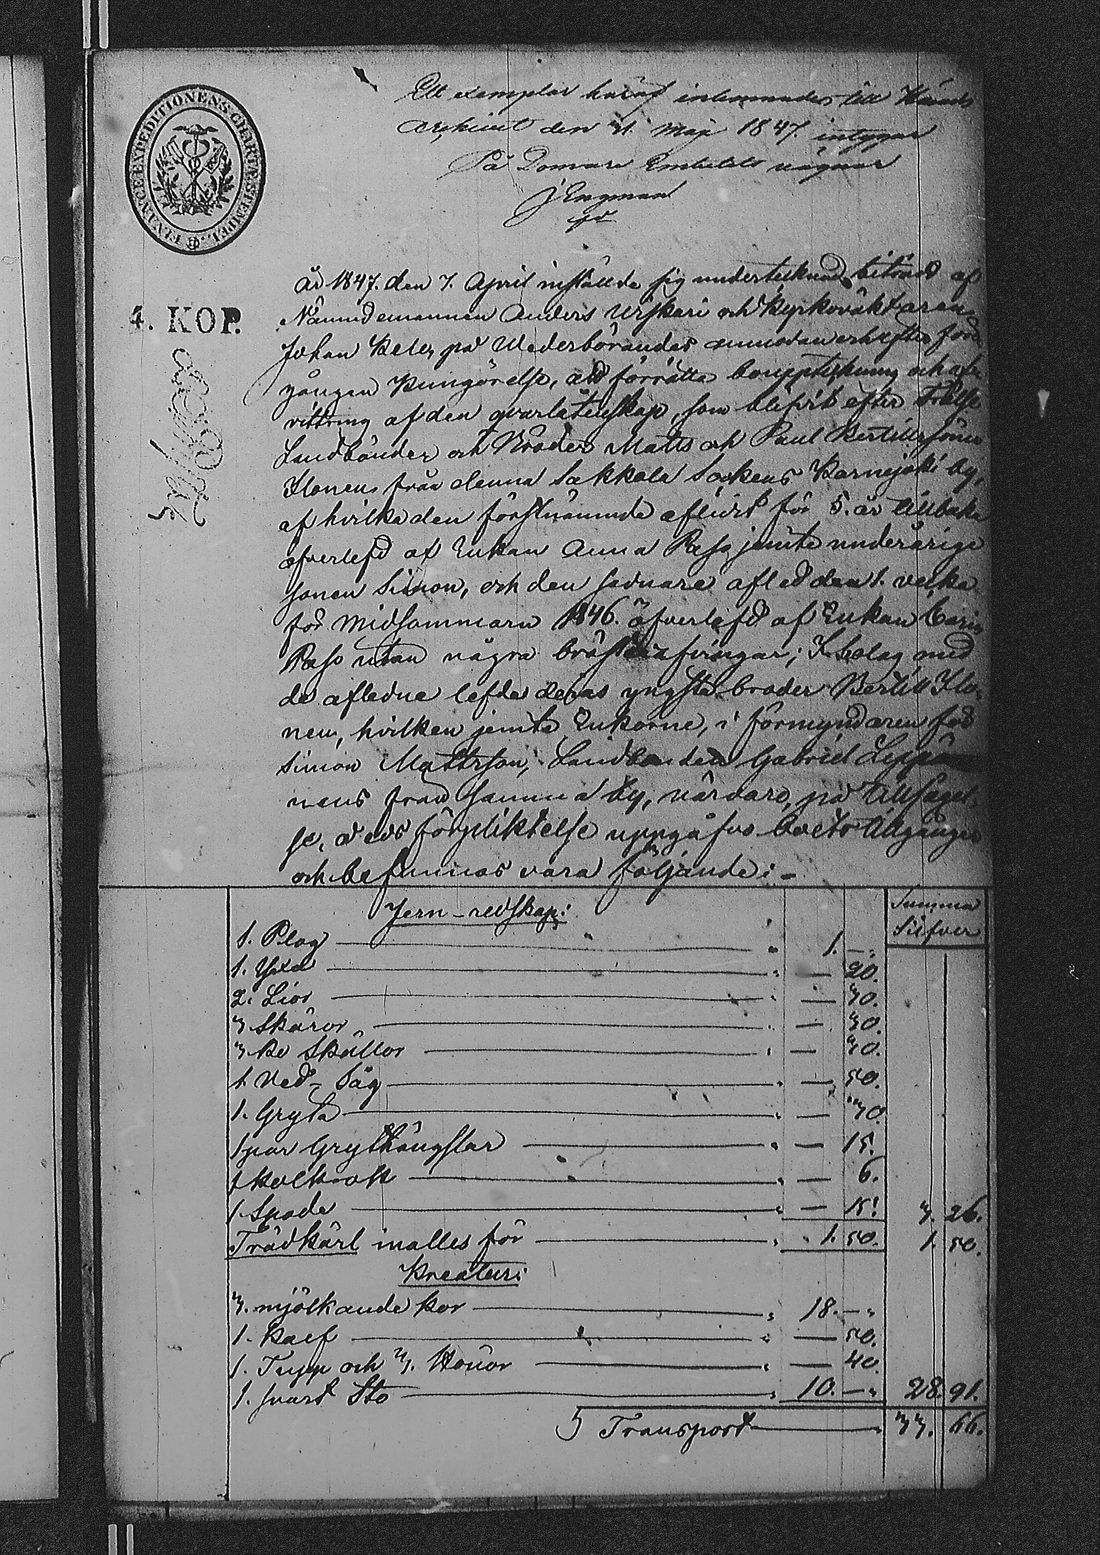 FINANCE EXPEDITIONENS CHARTÆ STEMPEL.
Ett exemplar häraf inlemnades till Härads
archivet den 21. Maji 1847. intygar
På Domare Embetets vägnar
J Engman
4. KOP.
År 1847. den 7. April inställde sig undertecknad biträdd af
Nämndemannen Anders Uiskari och Kyrkoväktaren
Johan på Wederbörandes anmodan och efter före
gången kungörelse, att förrätta bouppteckning och
vittring af den qvarlåtenskap, som blifvit efter Frälse
Landbönder och Bröder Matts och Paul Bertillssöner
Ilonen, från denna Sakkola Sockens Karnajoki by,
af hvilka den förstnämnde aflidit för 5. år tillbaka
öfverlefd af Enkan Anna jemte underårige
sonen Simon, och den sednare afled den 1. vecka
för Midsommarn 1846. öfverlefd af Enkan Carin
utan några bröstarfvingar; I bolag med
de aflidne lefde deras yngste broder Bertill Ilo-
nen, hvilken jemte Enkorne, i förmyndaren för
Simon Mattsson, Landbonden Gabriel Leppä
nens från samma by, närvaro, på tillsägel-
se, deras förpliktelse uppgåfvo boets tillgångar
och befunnos vara följande:-
Jern-redskap:
Summa
Silfver
1. Plog 1. —
1. Yxa — 20.
2. Liar — 30.
3 Skäror — 30.
3 Ko Skällor — 30.
1. Ved-Såg — 50.
1. Gryta — 30.
1 par Grythängslar — 15.
1 — 6.
1 Spade — 15. 3. 26.
Trädkärl inalles för 1. 50. 1. 50.
Kreatur:
3. mjölkande kor 18. —
1. Kalf — 50.
1. Tupp och 3. Hönor — 40.
1. svart Sto 10. — 28. 91.
Transport 33. 66.